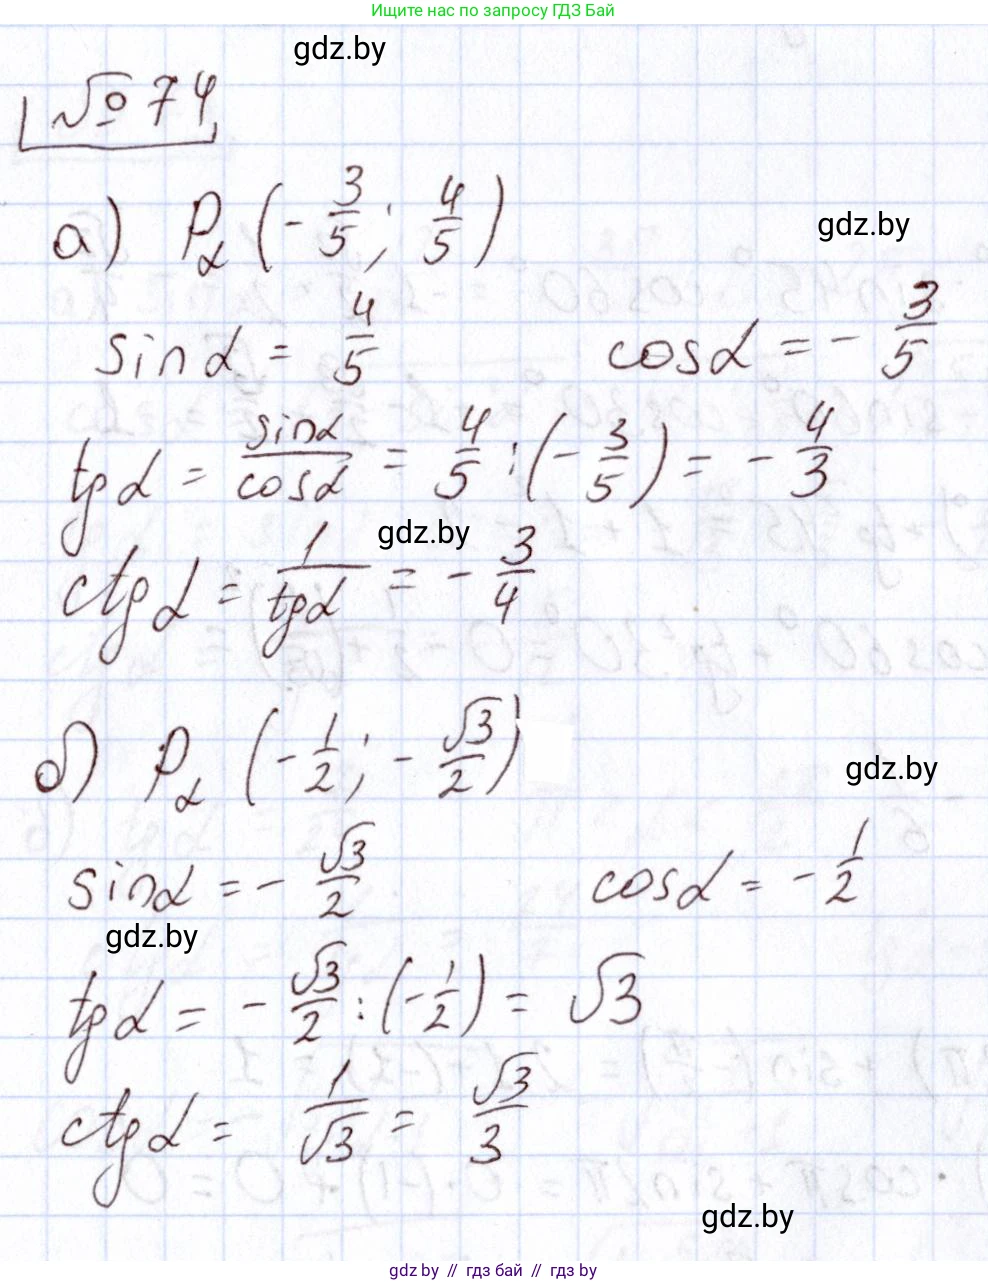 Ищите нас по запросу ГДЗ Бай
gdz.by
№ 74
а) Pα (-3/5; 4/5)
gdz.by
sinα = 4/5 cosα = -3/5
tgα = sinα/cosα = 4/5 : (-3/5) = -4/3
gdz.by
ctgα = 1/tgα = -3/4
б) Pα (-1/2; -√3/2)
gdz.by
sinα = -√3/2 cosα = -1/2
gdz.by
tgα = -√3/2 : (-1/2) = √3
ctgα = 1/√3 = √3/3
gdz.by
gdz.by // гдз бай // гдз by